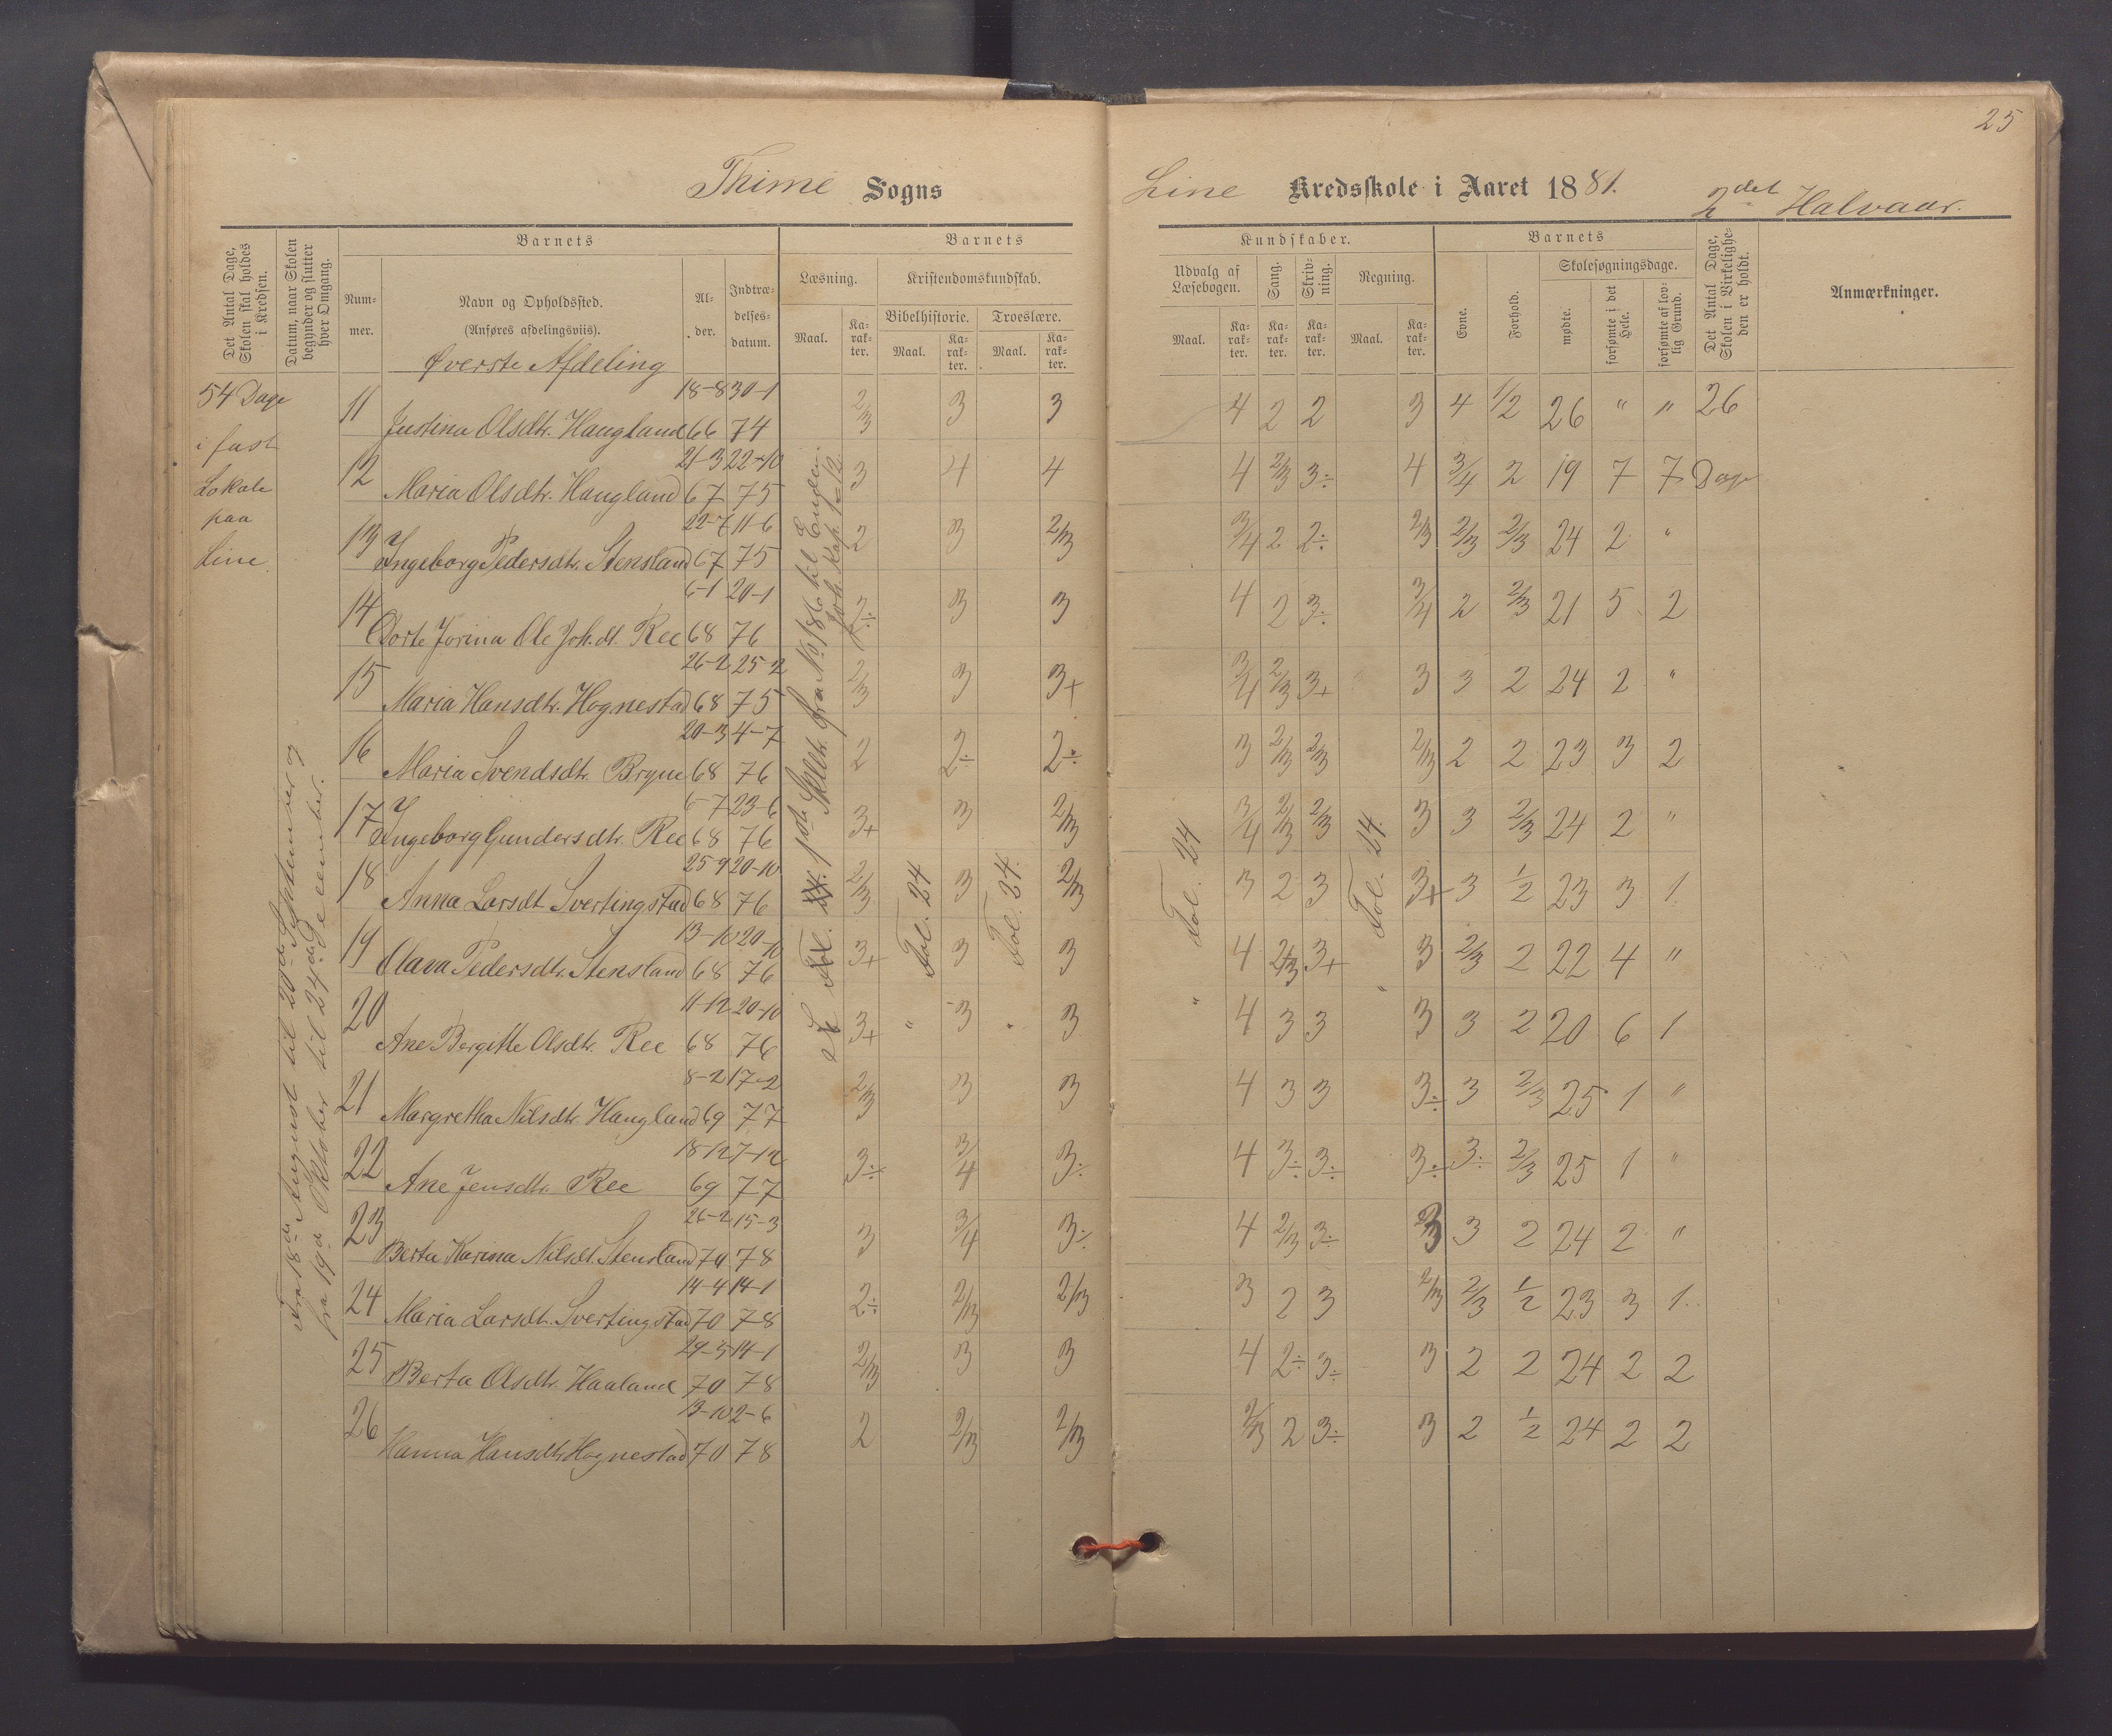 25
Thime Sogns Line Kredsskole i Aaret 1881. 2det Halvaar.
Det Antal Dage, Skolen skal holdes i Kredsen.
Datum, naar Skolen begynder og slutter hver Omgang.
Barnets
Nummer.
Navn og Opholdssted.
(Anføres afdelingsviis).
Alder.
Indtrædelsesdatum.
Barnets
Læsning.
Maal.
Karakter.
Kristendomskundskab.
Bibelhistorie.
Maal.
Karakter.
Troeslære.
Maal.
Karakter.
Kundskaber.
Udvalg af Læsebogen.
Maal.
Karakter.
Sang.
Karakter.
Skrivning.
Karakter.
Regning.
Maal.
Karakter.
Barnets
Evne.
Forhold.
Skolesøgningsdage.
mødte.
forsømte i det Hele.
forsømte af lovlig Grund.
Det Antal Dage, Skolen i Virkeligheden er holdt.
Anmærkninger.
Øverste Afdeling
54 Dage
i fast
Lokale
paa
Line.
Fra 18de August til 20de September og
fra 19de Oktober til 24de December.
1ste Skldtr. fra No 186 til Enden.
Joh. Kap. 1-12
Fol. 24
Fol. 24.
Fol. 24
Fol. 24.
11 Justina Olsdtr. Haugland 18-8 66 30-1 74 2/3 3 3 4 2 2 3 4 1/2 26 " " 26
12 Maria Olsdtr. Haugland 21-3 67 22-10 75 3 4 4 4 2/3 3÷ 4 3/4 2 19 7 7 Dage
13 Ingeborg Pedersdtr. Stensland 22-7 67 11-6 75 2 3 2/3 3/4 2 2÷ 2/3 2/3 2/3 24 2 "
14 Dorte Jorina Ole Joh.dt. Ree 6-1 68 20-1 76 2÷ 3 3 4 2 3÷ 3/4 2 2/3 21 5 2
15 Maria Hansdtr. Hognestad 26-2 68 25-2 75 2/3 3 3+ 3/4 2/3 3+ 3 3 2 24 2 "
16 Maria Svendsdtr. Bryne 20-3 68 4-7 76 2 2÷ 2÷ 3 2/3 2/3 2/3 2 2 23 3 2
17 Ingeborg Gundersdtr. Ree 6-7 68 23-6 76 3+ 3 2/3 3/4 2/3 2/3 3 3 2/3 24 2 "
18 Anna Larsdt. Svertingstad 25-9 68 20-10 76 2/3 3 2/3 3 2 3 3+ 3 1/2 23 3 1
19 Olava Pedersdtr. Stensland 13-10 68 20-10 76 3+ 3 3 4 2/3 3+ 3 2/3 2 22 4 "
20 Ane Bergitte Olsdtr. Ree 11-12 68 20-10 76 3+ " 3 " 3 4 3 3 3 3 2 20 6 1
21 Margretha Nilsdtr. Haugland 8-2 69 17-2 77 2/3 3 3 4 3 3 3÷ 3 2/3 25 1 "
22 Ane Jensdtr. Ree 18-12 69 7-12 77 3÷ 3/4 3÷ 4 3÷ 3÷ 3÷ 3÷ 2/3 25 1 "
23 Berta Karina Nilsdt. Stensland 26-2 70 15-3 78 3 3/4 3÷ 4 2/3 3÷ 3 3 2 24 2 "
24 Maria Larsdt. Svertingstad 14-4 70 14-1 78 2÷ 2/3 2/3 3 2 3 2/3 2/3 1/2 23 3 1
25 Berta Olsdtr. Haaland 29-5 70 14-1 78 2/3 3 3 4 2÷ 3÷ 3 2 2 24 2 2
26 Hanna Hansdtr. Hognestad 13-10 70 2-6 78 2 2/3 2/3 2/3 2 3÷ 3 2 1/2 24 2 2